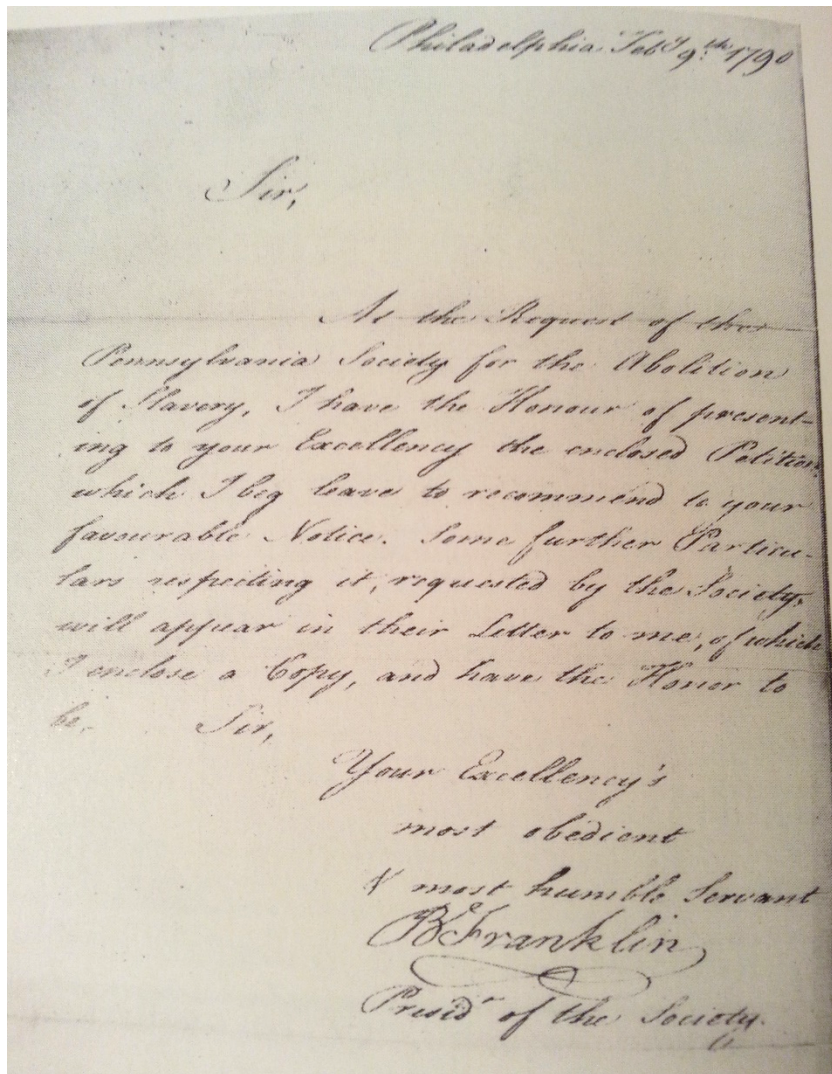 Philadelphia Feby 9th 1790
Sir,
At the Request of the
Pennsylvania Society for the Abolition
of Slavery, I have the Honour of present-
ing to your Excellency the enclosed Petition,
which I beg leave to recommend to your
favourable Notice. Some further Particu-
lars respecting it, requested by the Society,
will appear in their Letter to me, of which
I enclose a Copy, and have the Honor to
be, Sir,
Your Excellency's
most obedient
& most humble Servant
B Franklin
Presidt of the Society.